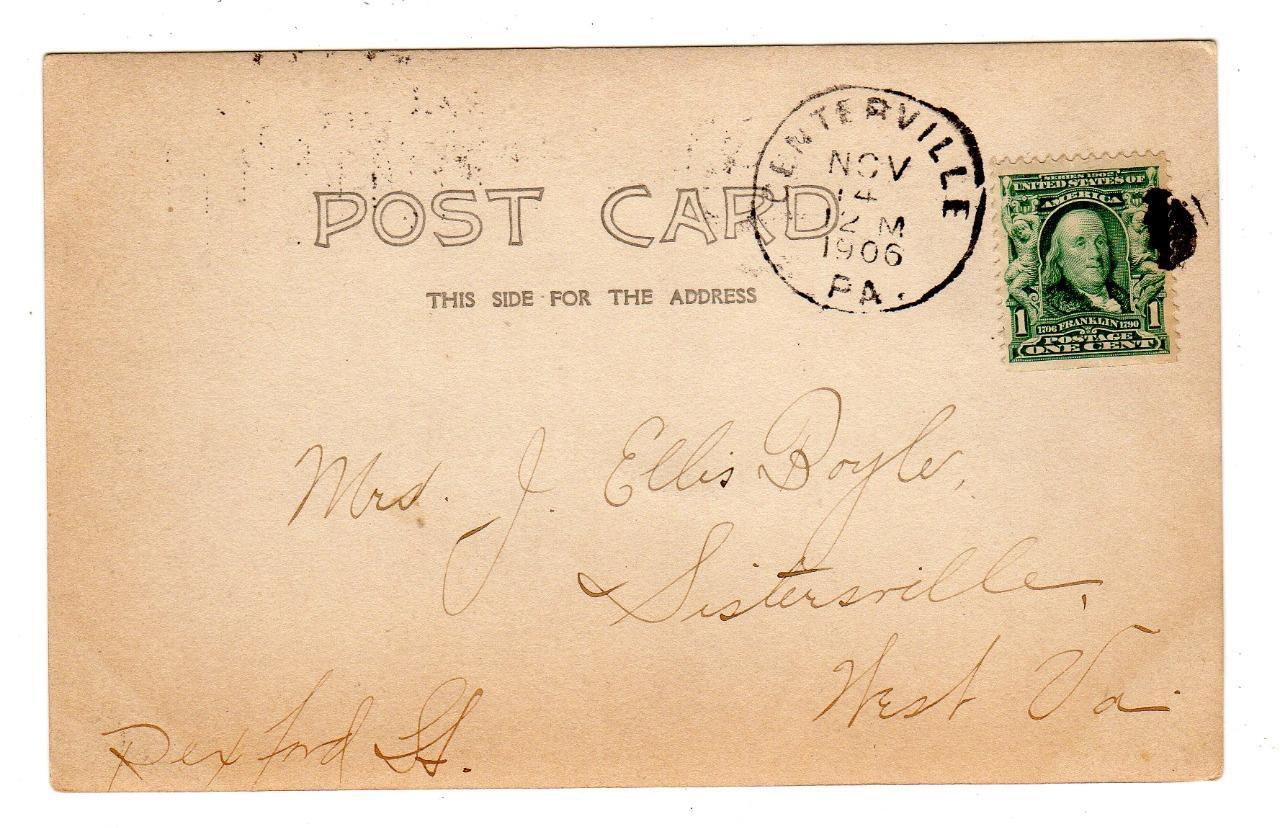 POST CARD
THIS SIDE FOR THE ADDRESS
CENTERVILLE
NOV
14
12 M
1906
PA.
SERIES 1902
UNITED STATES OF
AMERICA
1 1
1706 FRANKLIN 1790
POSTAGE
ONE CENT
Mrs. J. Ellis Boyle,
Sistersville,
West Va.
St.